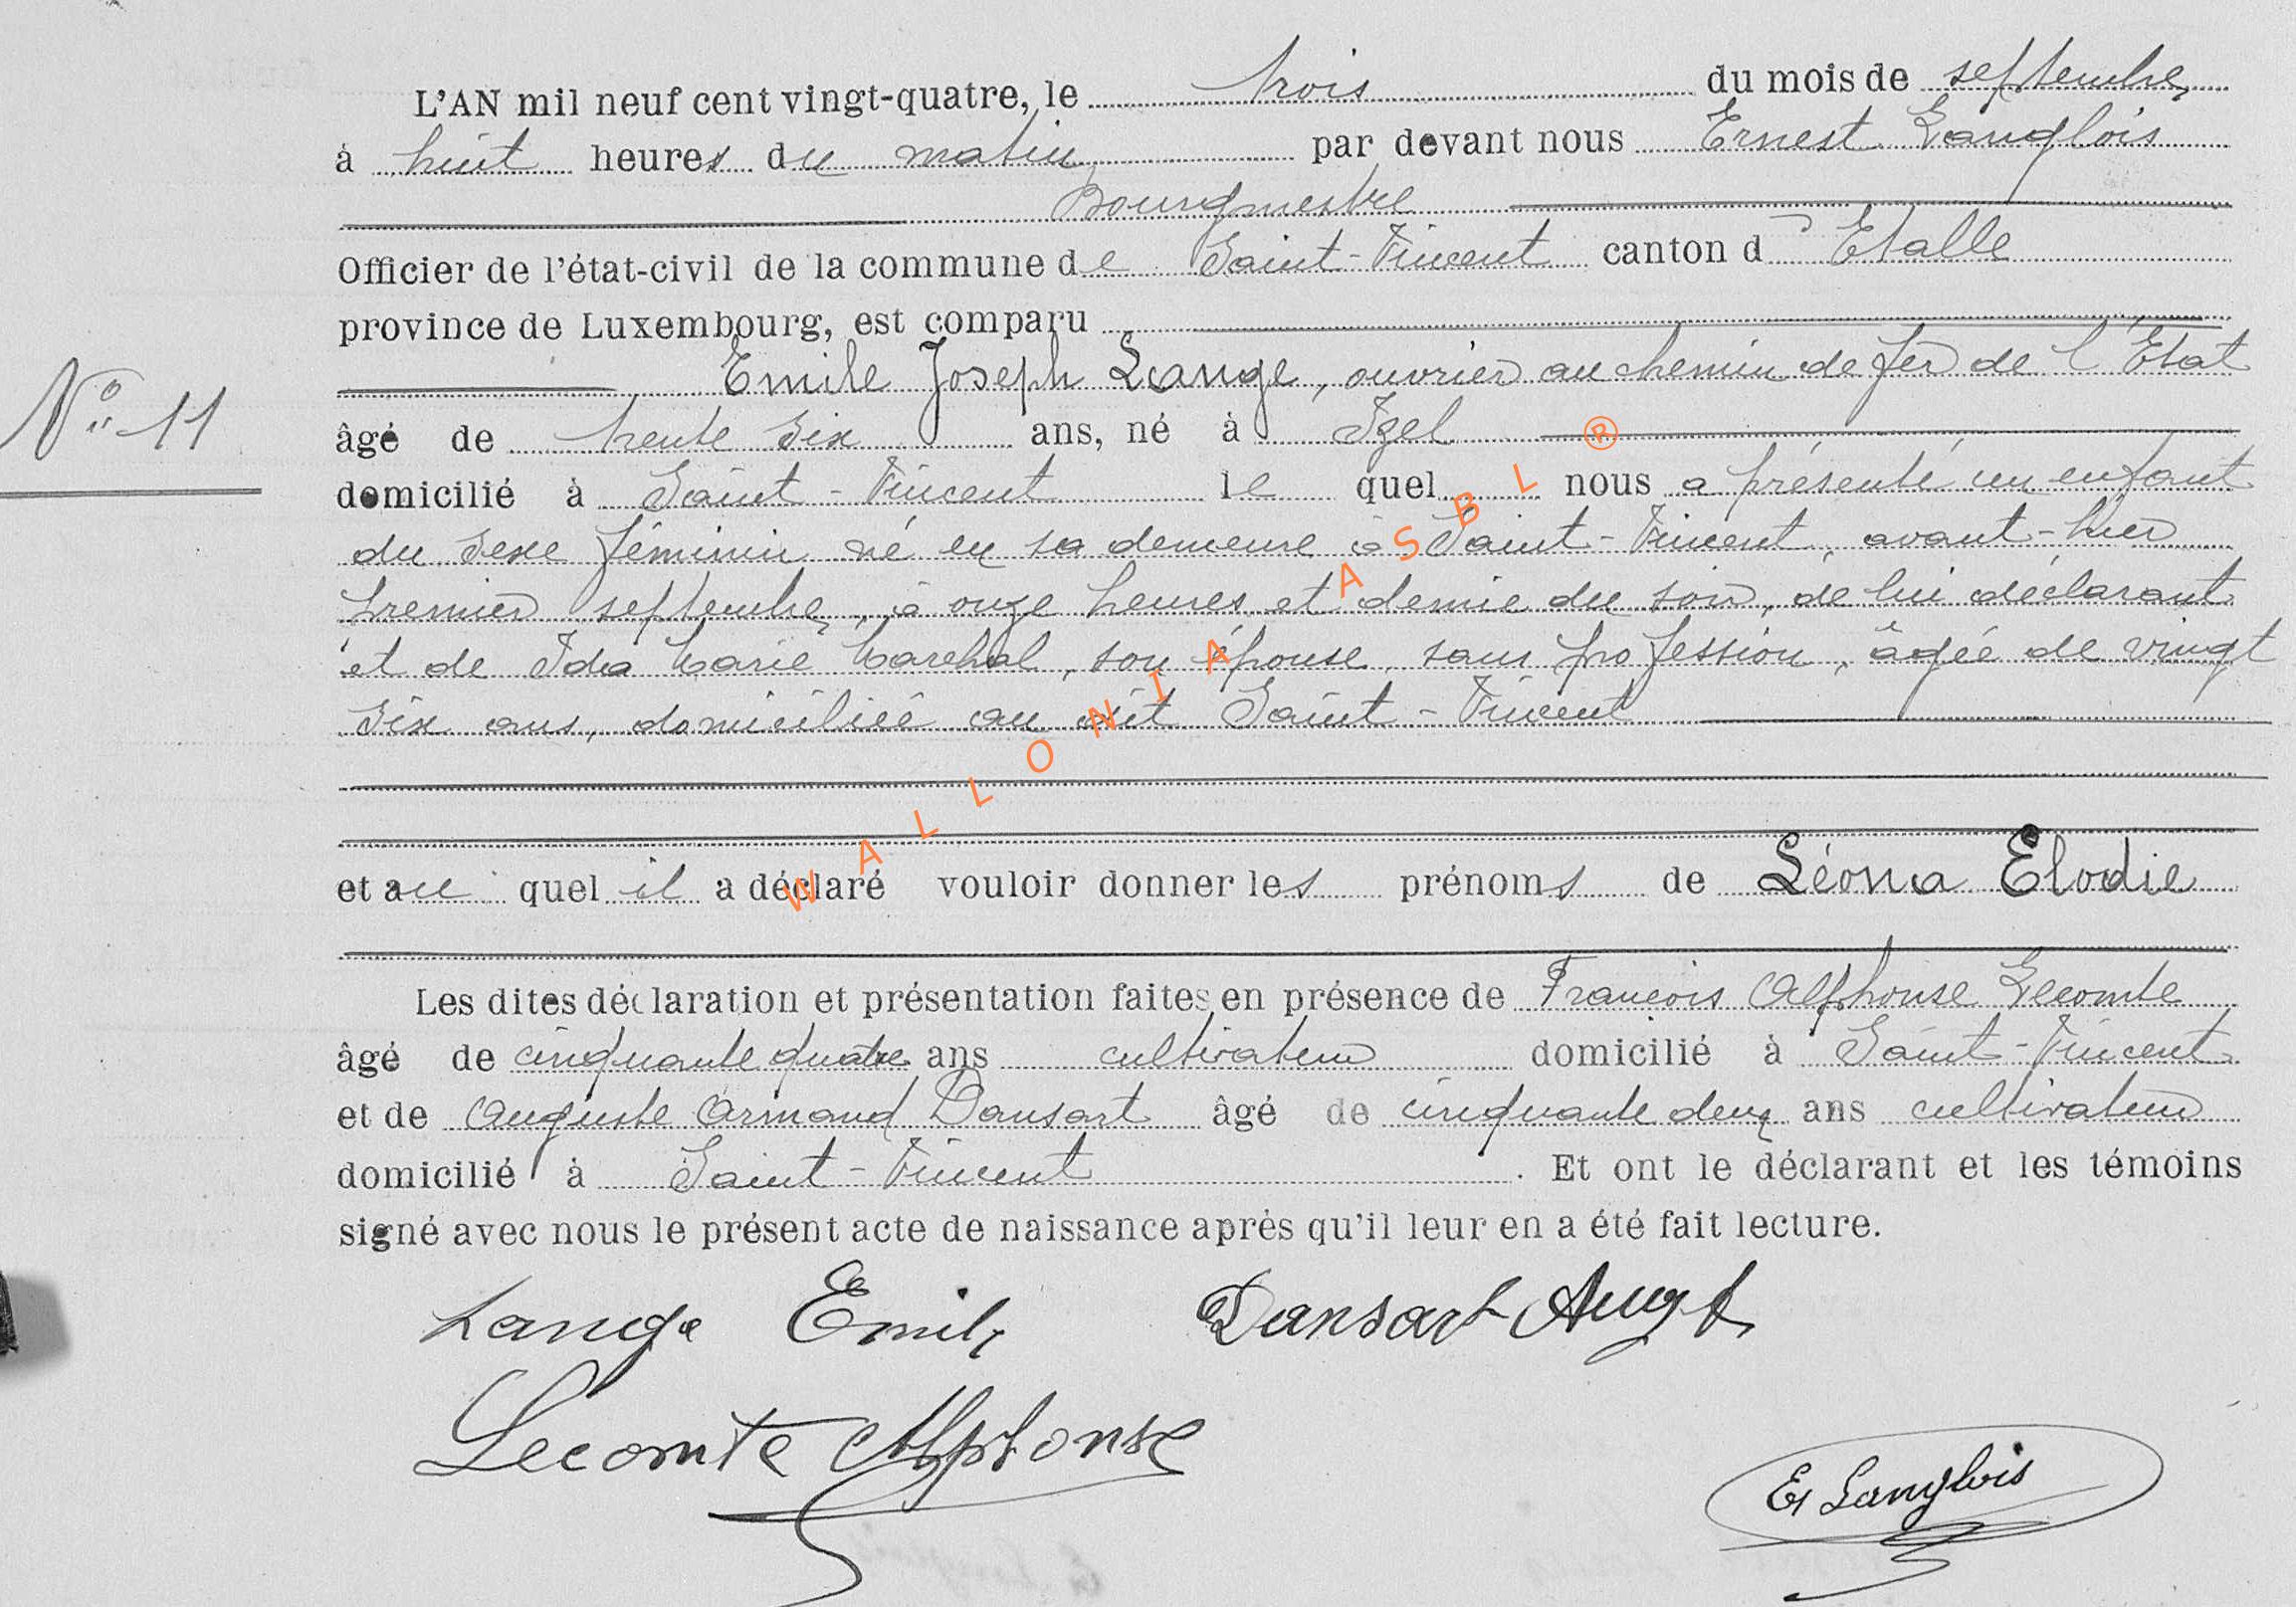 L'AN mil neuf cent vingt-quatre, le trois du mois de septembre,
à huit heures du matin par devant nous Ernest Langlois
Bourgmestre
Officier de l'état-civil de la commune de Saint-Vincent canton d'Etalle
province de Luxembourg, est comparu
Emile Joseph Lange, ouvrier au chemin de fer de l'Etat
N° 11
âgé de trente six ans, né à Izel
domicilié à Saint-Vincent lequel nous a présenté un enfant
du sexe féminin né en sa demeure à Saint-Vincent, avant-hier
premier septembre, à onze heures et demie du soir, de lui déclarant
et de Ida Marie Marchal, son épouse, sans profession, âgée de vingt
six ans, domiciliée au dit Saint-Vincent
et au quel il a déclaré vouloir donner les prénoms de Léona Elodie
Les dites déclaration et présentation faites en présence de François Alphonse Lecomte
âgé de cinquante quatre ans cultivateur domicilié à Saint-Vincent
et de Auguste Armand Dansart âgé de cinquante deux ans cultivateur
domicilié à Saint-Vincent. Et ont le déclarant et les témoins
signé avec nous le présent acte de naissance après qu'il leur en a été fait lecture.
Lange Emile Dansart Augt
Lecomte Alphonse
Et Langlois
WALLONIA ASBL ®